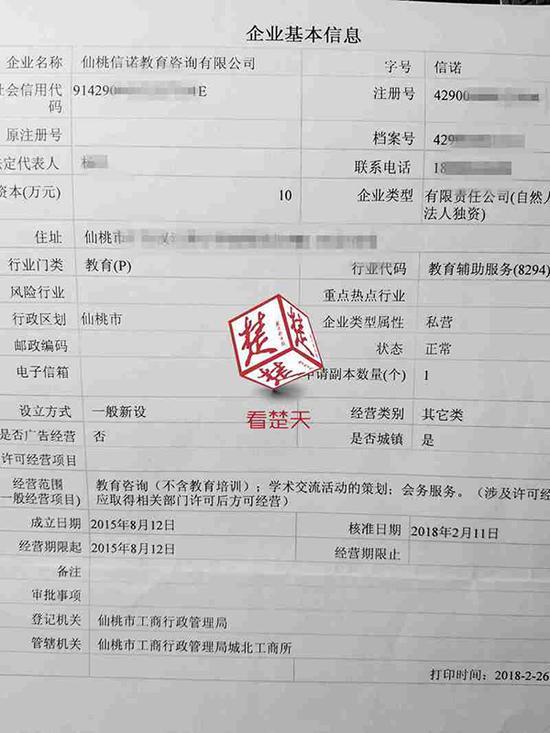 企业基本信息
企业名称 仙桃信诺教育咨询有限公司 字号 信诺
社会信用代码 914290 E 注册号 42900
原注册号 档案号 429
法定代表人 杨 联系电话 18
资本(万元) 10 企业类型 有限责任公司(自然人
法人独资)
住址 仙桃市
行业门类 教育(P) 行业代码 教育辅助服务(8294)
风险行业 重点热点行业
行政区划 仙桃市 企业类型属性 私营
邮政编码 状态 正常
电子信箱 申请副本数量(个) 1
楚
看楚天
设立方式 一般新设 经营类别 其它类
是否广告经营 否 是否城镇 是
许可经营项目
经营范围 教育咨询（不含教育培训）；学术交流活动的策划；会务服务。（涉及许可经
一般经营项目) 应取得相关部门许可后方可经营）
成立日期 2015年8月12日 核准日期 2018年2月11日
经营期限起 2015年8月12日 经营期限止
备注
审批事项
登记机关 仙桃市工商行政管理局
管辖机关 仙桃市工商行政管理局城北工商所
打印时间：2018-2-26